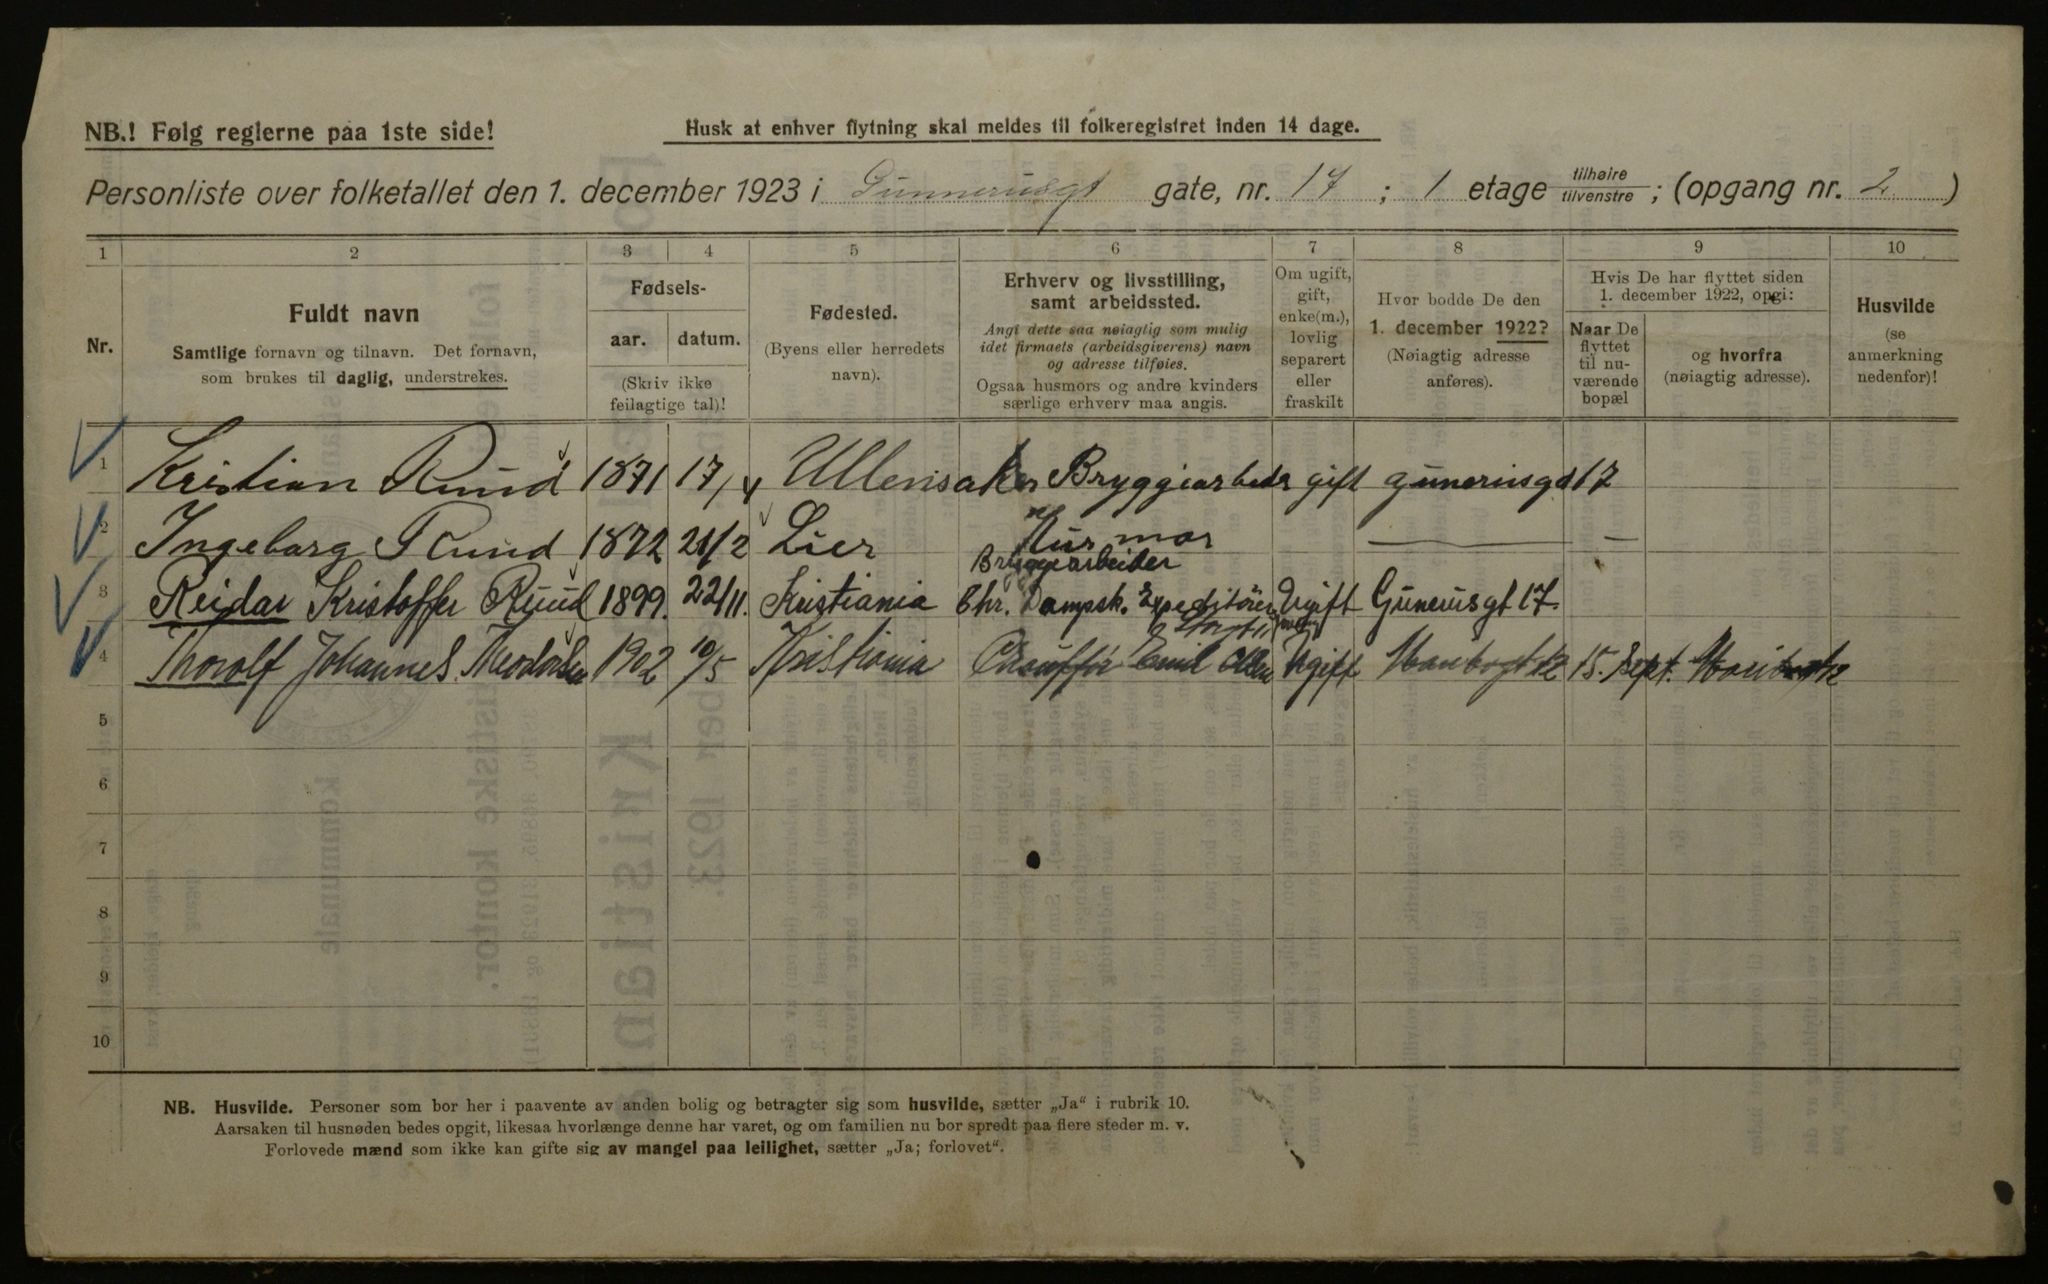 NB.! Følg reglerne paa 1ste side!
Husk at enhver flytning skal meldes til folkeregistret inden 14 dage.
Personliste over folketallet den 1. december 1923 i Gunnerusgt gate, nr. 17 ; 1 etage tilhøire tilvenstre ; (opgang nr. 2 )
1 2 3 4 5 6 7 8 9 10
Nr.
Fuldt navn
Samtlige fornavn og tilnavn. Det fornavn,
som brukes til daglig, understrekes.
Fødsels-
aar. datum.
(Skriv ikke
feilagtige tal)!
Fødested.
(Byens eller herredets
navn).
Erhverv og livsstilling,
samt arbeidssted.
Angi dette saa nøiagtig som mulig
idet firmaets (arbeidsgiverens) navn
og adresse tilføies.
Ogsaa husmors og andre kvinders
særlige erhverv maa angis.
Om ugift,
gift,
enke(m.),
lovlig
separert
eller
fraskilt
Hvor bodde De den
1. december 1922?
(Nøiagtig adresse
anføres).
Hvis De har flyttet siden
1. december 1922, opgi:
Naar De
flyttet
til nu-
værende
bopæl
og hvorfra
(nøiagtig adresse).
Husvilde
(se
anmerkning
nedenfor)!
1 Kristian Ruud 1871 17/4 Ullensaker Bryggiarbeder gift gunerusgd 17
2 Ingeborg Ruud 1872 21/2 Lier Husmor — —
Bryggearbeider
3 Reidar Kristoffer Ruud 1899. 22/11. Kristiania Chr. Dampsk. Expeditören Ugift Gunerusgt 17.
4 Thorolf Johannes Theodorsen 1902 10/5 Kristiania Chauffør Emil Olsen Ugift 15. sept.
5
6
7
8
9
10
NB. Husvilde. Personer som bor her i paavente av anden bolig og betragter sig som husvilde, sætter „Ja“ i rubrik 10.
Aarsaken til husnøden bedes opgit, likesaa hvorlænge denne har varet, og om familien nu bor spredt paa flere steder m. v.
Forlovede mænd som ikke kan gifte sig av mangel paa leilighet, sætter „Ja; forlovet“.